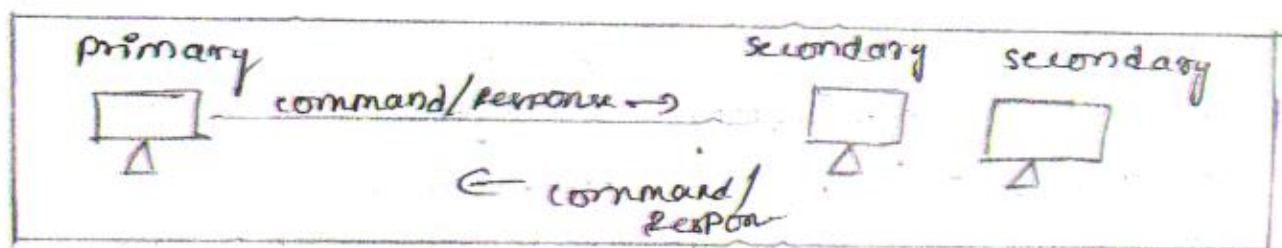 primary
secondary
secondary
command/Response →
← command/
Respon